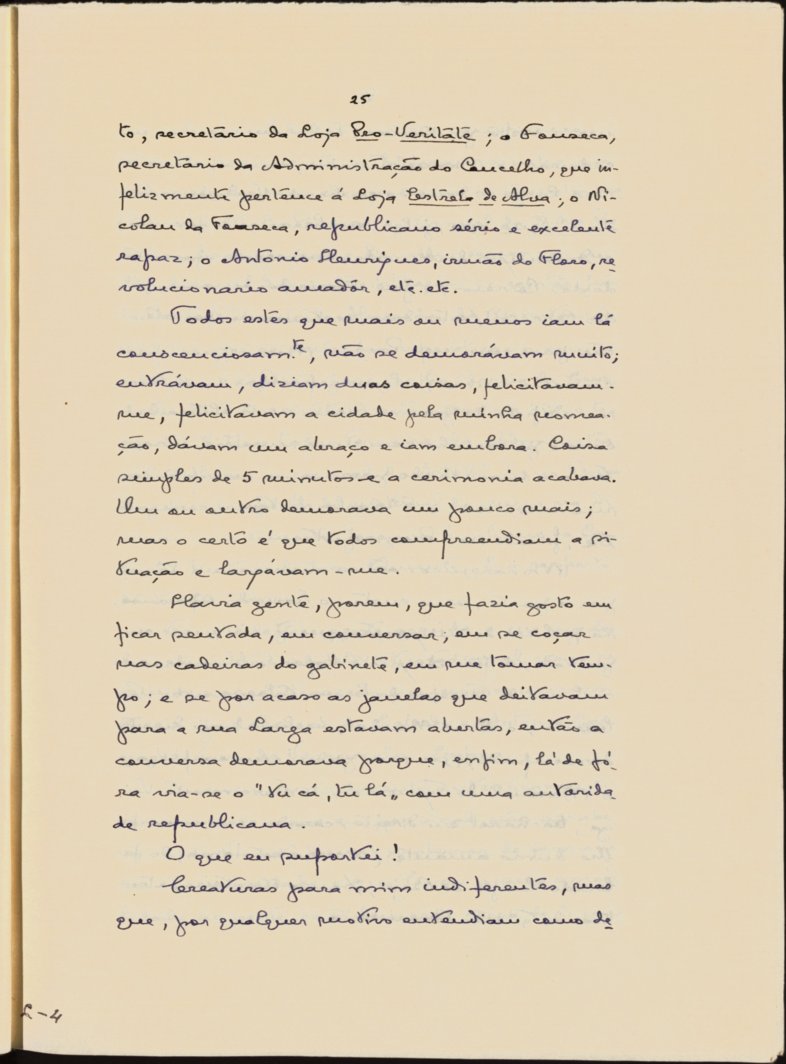 25
to, secretário da Loja Pro-Veritate; o Fonseca,
secretario da Administração do Concelho, que in-
felizmente pertence á Loja Estrela de Alva; o Ni-
colau da Fonseca, republicano sério e excelente
rapaz; o António Henriques, irmão do Floro, re-
volucionario amadôr, etc. etc.
Todos estes que mais ou menos iam lá
conscenciosam.te, não se demorávam muito;
entrávam, diziam duas coisas, felicitavam-
me, felicitavam a cidade pela minha nomea-
ção, dávam um abraço e iam embora. Coisa
simples de 5 minutos e a cerimonia acabava.
Um ou outro demorava um pouco mais;
mas o certo é que todos compreendiam a si-
tuação e largávam-me.
Havia gente, porem, que fazia gosto em
ficar sentada, em conversar, em se coçar
nas cadeiras do gabinete, em me tomar tem-
po; e se por acaso as janelas que deitavam
para a rua Larga estavam abertas, então a
conversa demorava porque, enfim, lá de fó-
ra via-se o "tu cá, tu lá„ com uma autorida-
de republicana.
O que eu suportei!
Creaturas para mim indiferentes, mas
que, por qualquer motivo entendiam como de-
L-4